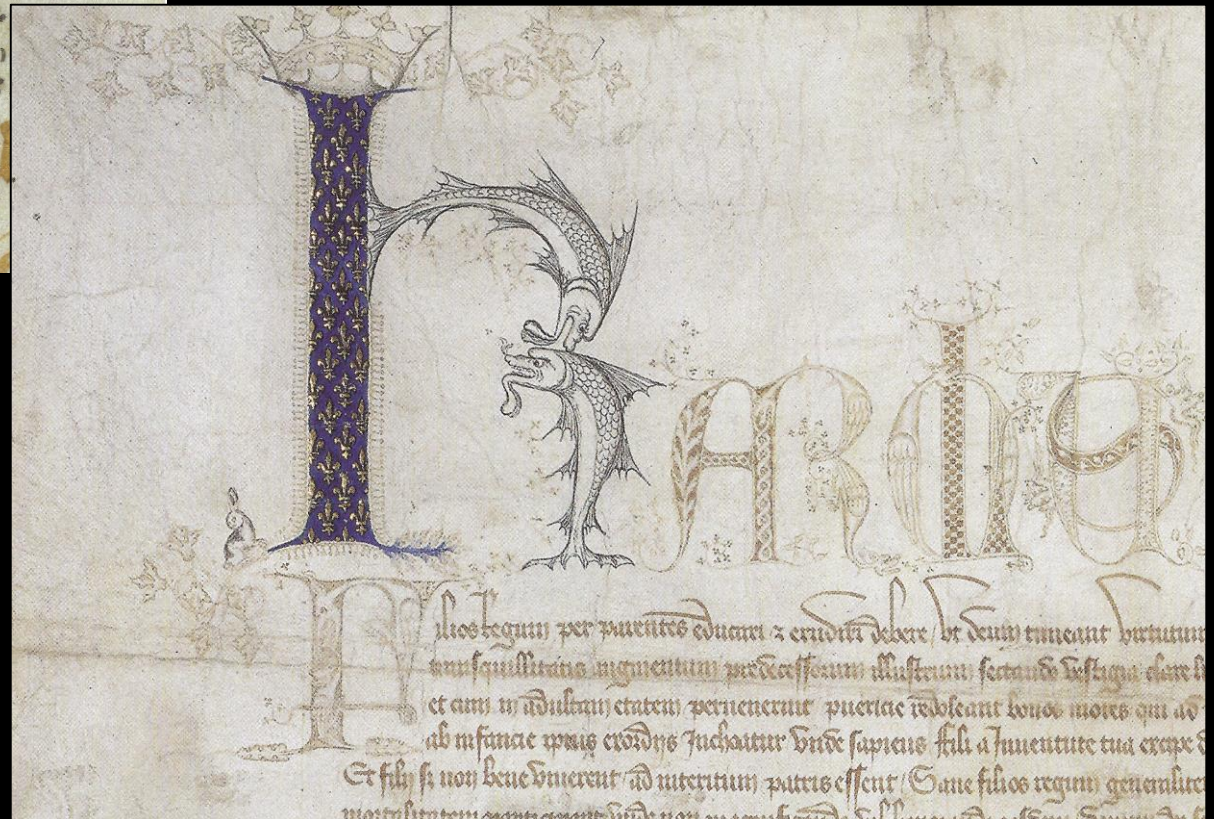 Karolus
Filios Regum per parentes educari & erudiri debere / vt deum timeant virtutum
tranquillitatis augmentum predecessorum illustrium sectando vestigia clare
et cum in adultam etatem peruenerint puericie redoleant bonos mores qui ad
ab infancie ipsius exordijs Inchoatur vnde sapiens fili a Juuentute tua excipe
Et filij si non bene viuerent ad interitum patris essent / Sane filios regum
mortalitatem